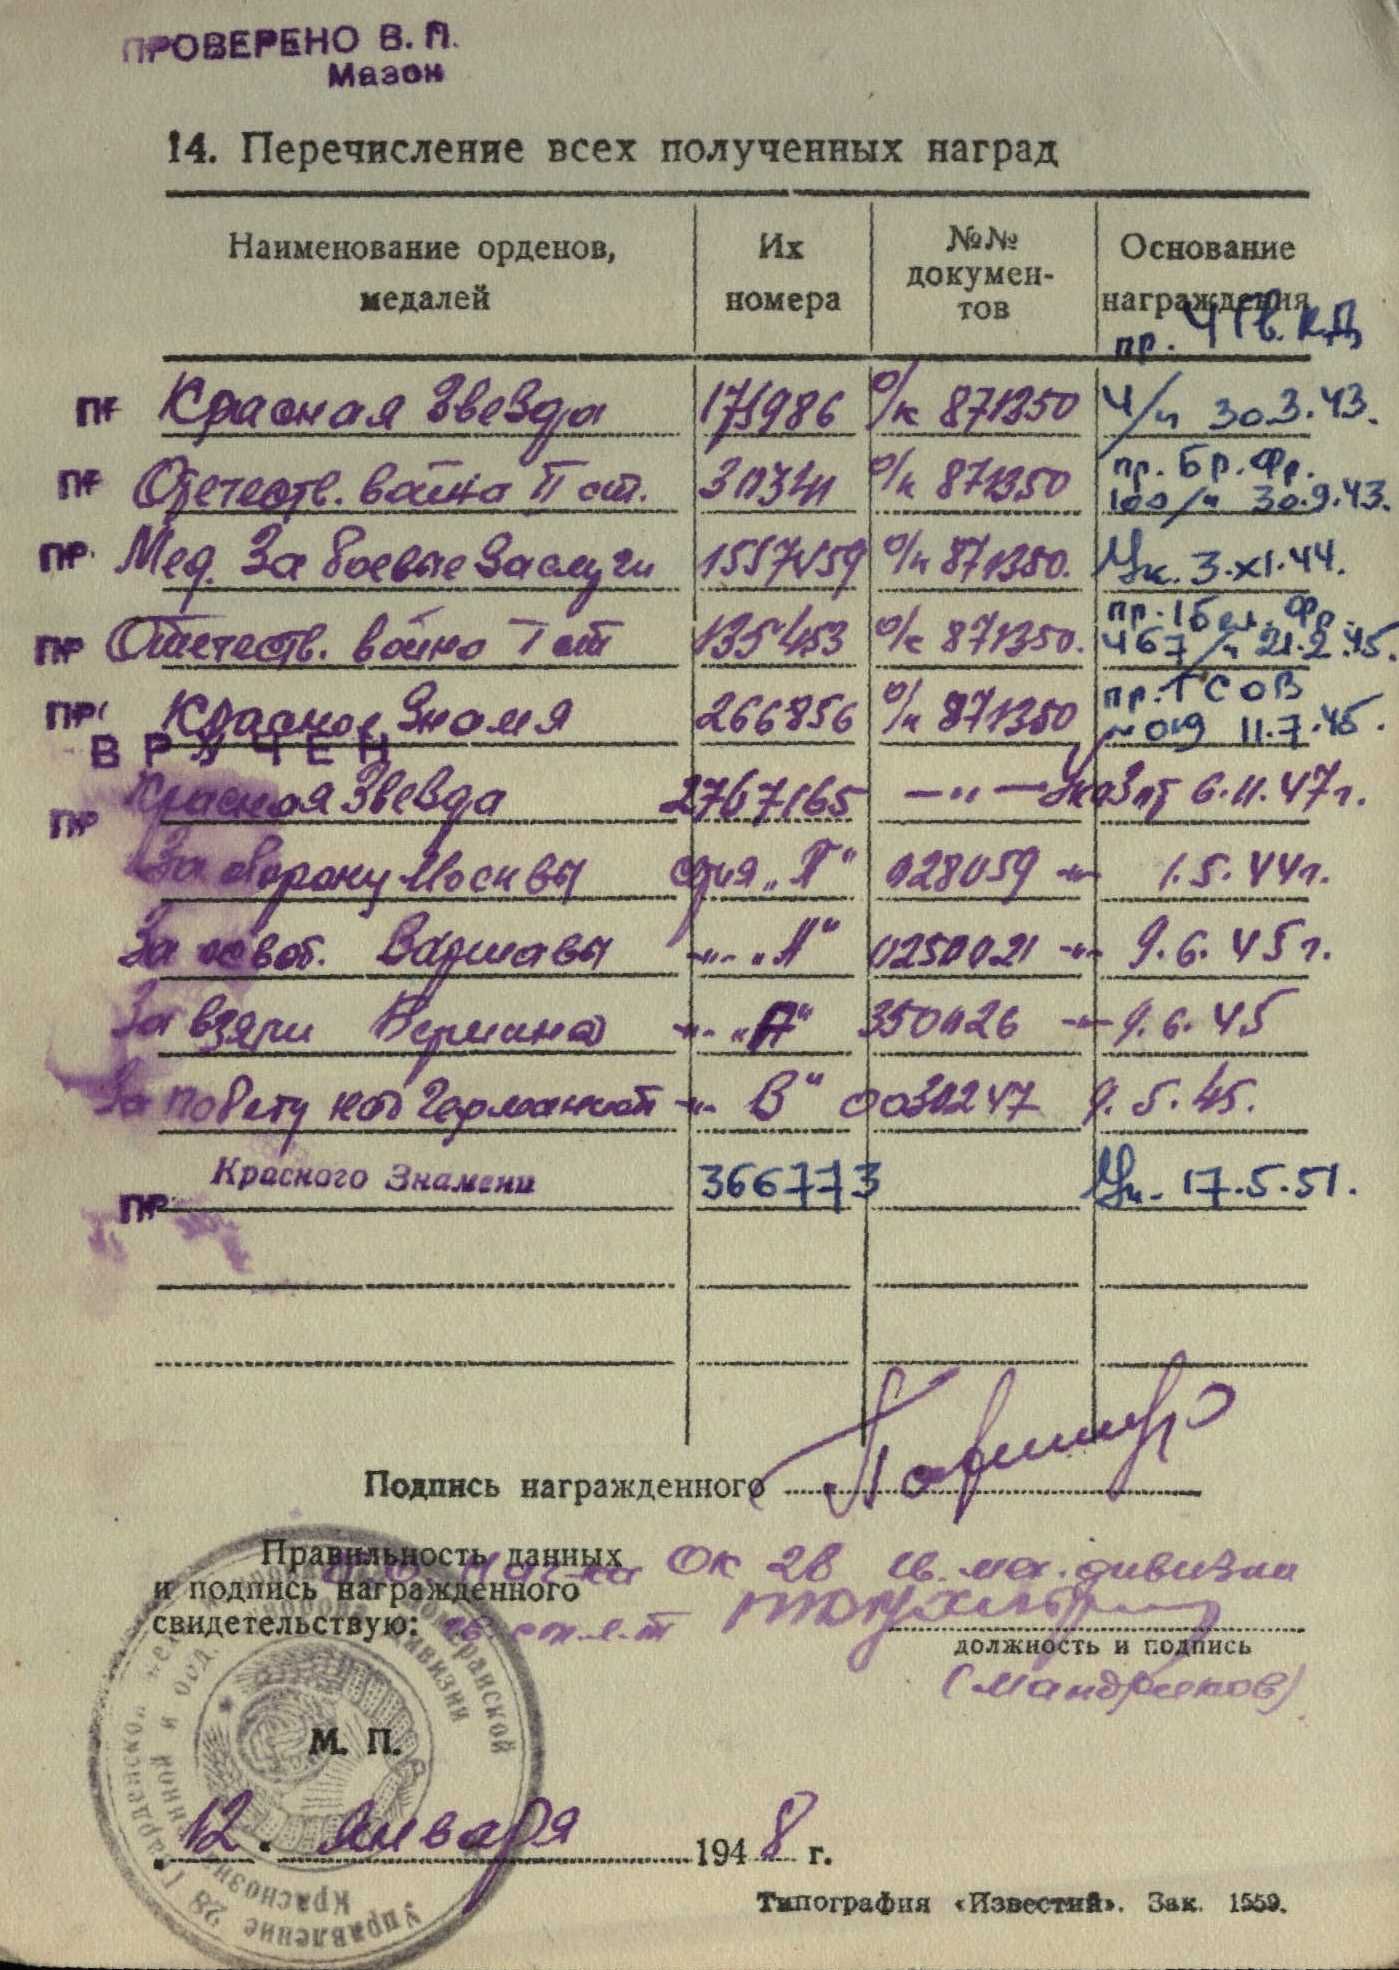 ПРОВЕРЕНО В. П.
Мазон
14. Перечисление всех полученных наград
Наименование орденов, медалей
Их номера
№№ документов
Основание награждения
пр. 4 Гв. КД
ПР Красная Звезда 171986 о/к 871350 4/н 30.3.43.
пр. Бр. Фр.
ПР Отечеств. война II ст. о/к 871350 100/н 30.9.43.
ПР. Мед. За боевые заслуги о/к 871350. Ук. 3.XI.44.
пр. 1 Бел. Фр.
ПР Отечеств. война I ст 135453 о/к 871350. 467/н 21.2.45.
пр. ГСОВ
ПР Красное Знамя 266856 о/к 871350 № 019 11.7.45.
ВРУЧЕН
ПР Красная Звезда 2767165 —"— Указ от 6.11.47г.
За оборону Москвы серия „А" 028059 —"— 1.5.44г.
За освоб. Варшавы —"— „А" 0250021 —"— 9.6.45г.
За взяти Берлина —"— „А" 350026 —"— 9.6.45
За победу над Германией —"— В" 9.5.45.
ПР Красного Знамени 366773 Ук. 17.5.51.
Подпись награжденного
Правильность данных
и подпись награжденного
свидетельствую:
ОК 28 гв. мех. дивизии
гв. ст. л-т
должность и подпись
М. П.
12. Января 1948 г.
Управление 28 Гвардейской
Краснознаменной
дивизии
Типография «Известий». Зак. 1559.